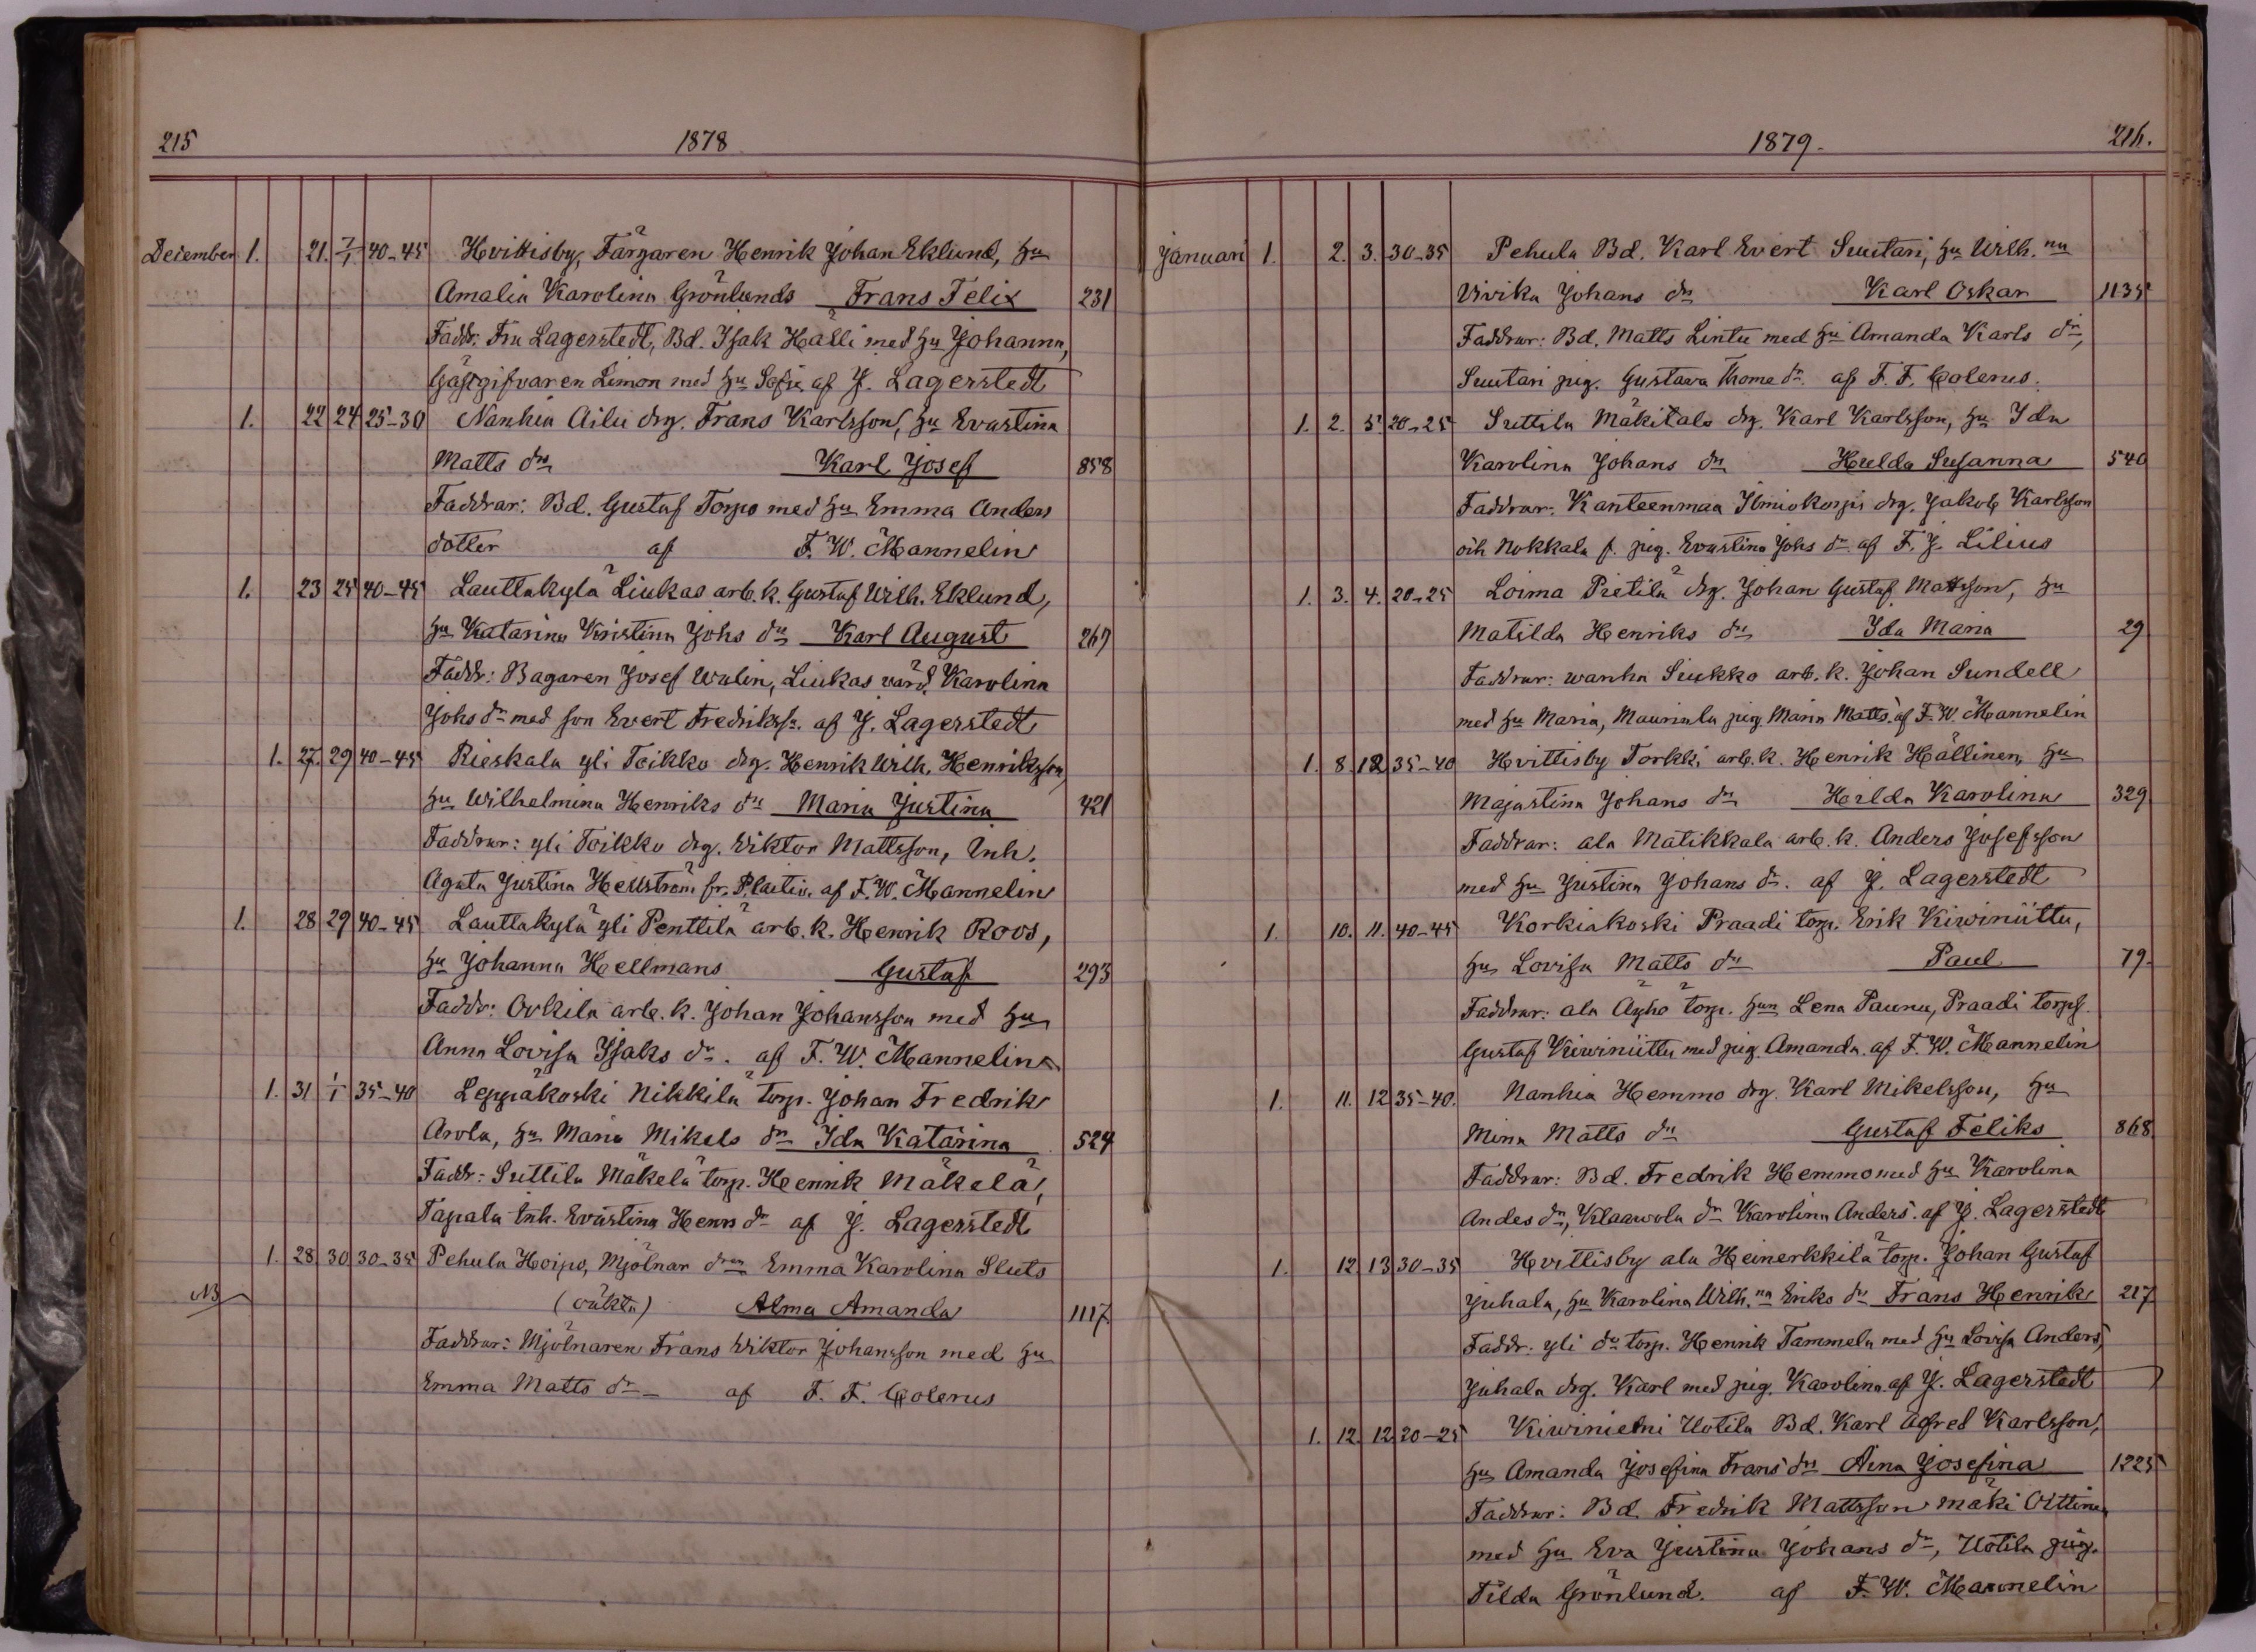 215 1878
December 1. 21. 7/1 40-45 Hvittisby, Färgaren Henrik Johan Eklund, hu
Amalia Karolina Grönlunds Frans Felix 231
Faddr. Fru Lagerstedt, Bd. Isak Hälli med hu Johanna,
Gästgifvaren Limon med hu Sofia af J. Lagerstedt
1. 22 24 25-30 Nanhia Ailu drg. Frans Karlsson, hu Evastina
Matts dr Karl Josef 858
Faddrar: Bd. Gustaf Torpo med hu Emma Anders
dotter af F. W. Mannelin
1. 23 25 40-45 Lauttakylä Liukas arb. k. Gustaf Wilh. Eklund,
hu Katarina Kristina Johs dr Karl August 267
Faddr: Bagaren Josef Walin, Liukas värd. Karolina
Johs dr med son Evert Fredrikss. af J. Lagerstedt
1. 27. 29 40-45 Rieskala yli Toikko drg. Henrik Wilh. Henriksson,
hu Wilhelmina Henriks dr Maria Justina 421
Faddrar: yli Toikko drg. Viktor Mattsson, Inh.
Agata Justina Hellström fr. Plaitio. af F. W. Mannelin
1. 28 29 40-45 Lauttakylä yli Penttilä arb. k. Henrik Roos,
hu Johanna Hellmans Gustaf 293
Faddr: Orkila arb. k. Johan Johansson med hu
Anna Lovisa Isaks dr. af F. W. Mannelin
1. 31 1/1 35-40 Leppäkoski Nikkilä torp. Johan Fredrik
Arola, hu Maria Mikels dr Ida Katarina 524
Faddr: Suttila Mäkelä torp. Henrik Mäkelä,
Tapala Inh. Evastina Henrs dr af J. Lagerstedt
1. 28 30 30-35 Pehula Hoipo, Mjölnar dren Emma Karolina Sluts
NB (oäkta) Alma Amanda 1117
Faddrar: Mjölnaren Frans Viktor Johansson med hu
Emma Matts dr - af F. F. Colerus
1879. 216.
Januari 1. 2. 3. 30-35 Pehula Bd. Karl Evert Suutari, hu Wilh. na
Vivika Johans dr Karl Oskar 1135
Faddrar: Bd. Matts Lintu med hu Amanda Karls dr,
Suutari pig. Gustava Thome dr. af F. F. Colerus.
1. 2. 5 20-25 Suttila Mäkitalo drg. Karl Karlsson, hu Ida
Karolina Johans dr Hulda Susanna 540
Faddrar. Kanteenmaa Ilmiokorpi drg. Jakob Karlsson
och Nokkala f. pig. Evastina Johs dr af F. J. Lilius
1. 3. 4. 20-25 Loima Pietilä drg. Johan Gustaf Mattsson, hu
Matilda Henriks dr Ida Maria 29
Faddrar: wanha Siukko arb. k. Johan Sundell
med hu Maria, Mauriala pig. Maria Matts. af F. W. Mannelin
1. 8 12 35-40 Hvittisby Torkki arb. k. Henrik Hällinen, hu
Majastina Johans dr Hilda Karolina 329
Faddrar: ala Matikkala arb. k. Anders Josefsson
med hu Justina Johans dr. af J. Lagerstedt
1. 10. 11. 40-45 Korkiakoski Praadi torp. Erik Kiwiniittu,
hu Lovisa Matts dr Paul 79.
Faddrar: ala Äyhö torp. hun Lena Paunu, Praadi torps.
Gustaf Kiwiniittu med pig. Amanda. af F. W. Mannelin
1. 11. 12 35-40. Nanhia Hemmo drg. Karl Mikelsson, hu
Mina Matts dr Gustaf Feliks 868
Faddrar: Bd. Fredrik Hemmo med hu Karolina
Andes dr, Klaawola dr Karolina Anders. af J. Lagerstedt
1. 12 13 30-35 Hvittisby ala Heinerkkilä torp. Johan Gustaf
Juhala, hu Karolina Wilh. na Eriks dr Frans Henrik 217
Faddr. yli dr torp. Henrik Tammela med hu Lovisa Anders,
Juhala drg. Karl med pig. Karolina. af J. Lagerstedt
1. 12. 12 20-25 Kiwiniemi Uotila Bd. Karl Alfred Karlsson,
hu Amanda Josefina Frans drs Aina Josefina 1225
Faddrar: Bd. Fredrik Mattsson mäki Ottinen
med hu Eva Justina Johans dr, Uotila pig.
Tilda Grönlund. af F. W. Mannelin